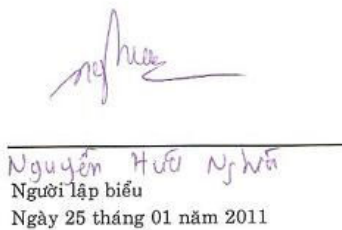 nghĩa
Nguyễn Hữu Nghĩa
Người lập biểu
Ngày 25 tháng 01 năm 2011